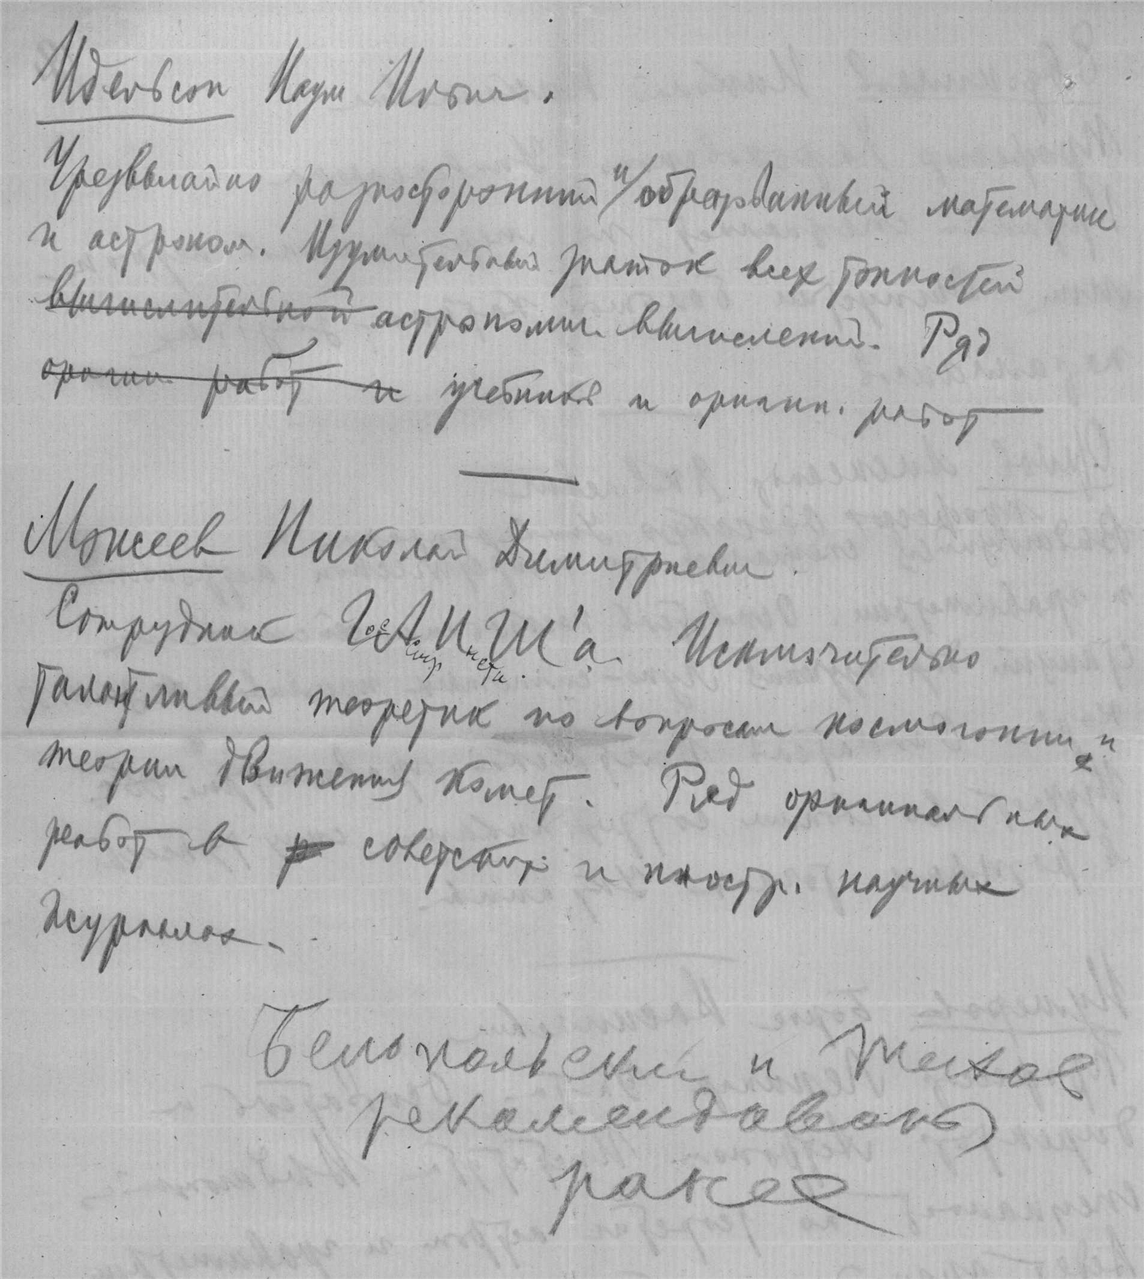 Идельсон Наум Ильич.
Чрезвычайно разносторонний и образованный математик
и астроном. Изумительный знаток всех тонкостей
вычислительной астрономич. вычислений. Ряд
оригин. работ и учебников и оригин. работ
Моисеев Николай Димитриевич
Сотрудник ГАИШ'а. Исключительно
Гос. Астр. Инст.
талантливый теоретик по вопросам космогонии и
теории движения комет. Ряд оригинальных
работ в советских и иностр. научных
журналах.
Белопольский и Тихов
рекомендованы
ранее